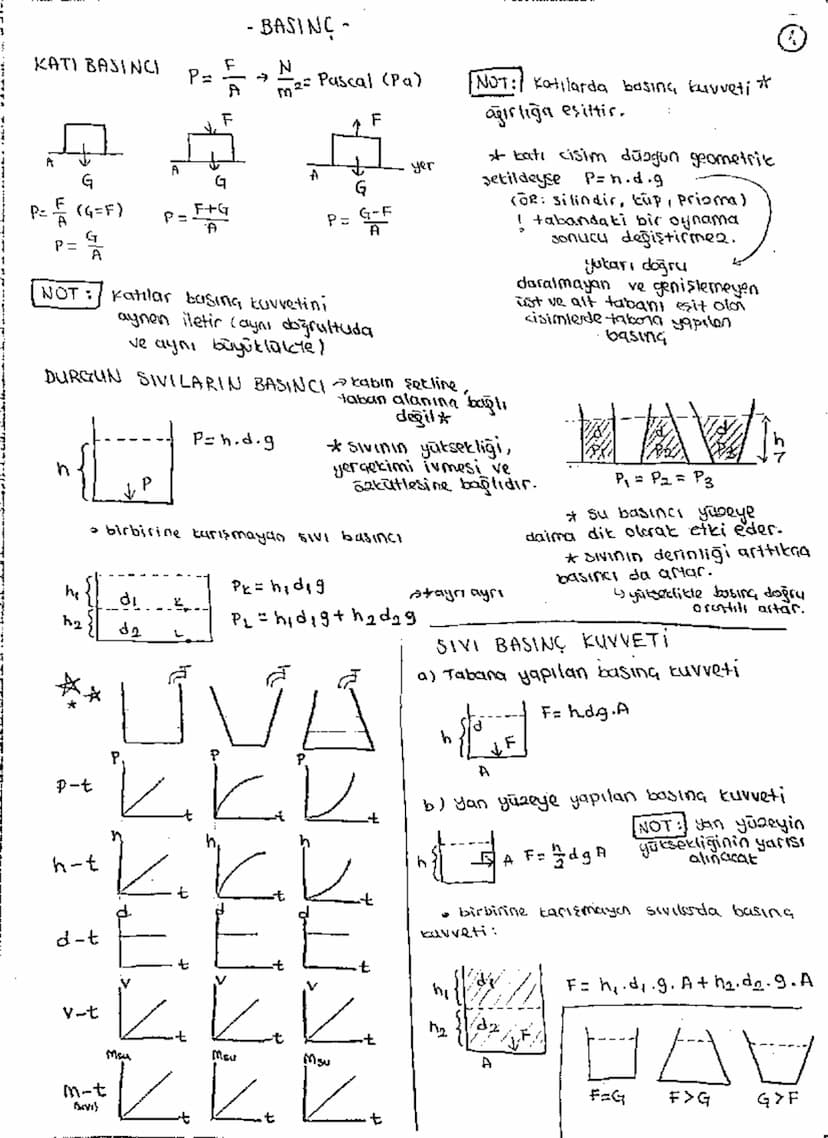 - BASINÇ -
1
KATI BASINCI P = F/A → N/m² = Pascal (Pa)
NOT: Katılarda basınç kuvveti *
ağırlığa eşittir.
F
F
A
G
A
G
A
G
yer
P = F/A (G=F)
P = G/A
P = F+G/A
P = G-F/A
* katı cisim düzgün geometrik
şekildeyse P=h.d.g
(ÖR: silindir, küp, prizma)
! tabandaki bir oynama
sonucu değiştirmez.
yukarı doğru
daralmayan ve genişlemeyen
üst ve alt tabanı eşit olan
cisimlerde tabana yapılan
basınç
NOT: Katılar basınç kuvvetini
aynen iletir (aynı doğrultuda
ve aynı büyüklükte)
DURGUN SIVILARIN BASINCI → kabın şekline,
taban alanına bağlı
değil *
h
P
P=h.d.g
* sıvının yüksekliği,
yerçekimi ivmesi ve
özkütlesine bağlıdır.
d d d
P1 P2 P3
h
P1 = P2 = P3
* su basıncı yüzeye
daima dik olarak etki eder.
* sıvının derinliği arttıkça
basıncı da artar.
↳ yükseklikle basınç doğru
orantılı artar.
→ birbirine karışmayan sıvı basıncı
h1 d1 K
h2 d2 L
PK = h1d1g
PL = h1d1g + h2d2g
→ ayrı ayrı
P-t
P t
P t
P t
h-t
h t
h t
h t
d-t
d t
d t
d t
v-t
v t
v t
v t
m-t
(sıvı)
msu t
msu t
msu t
SIVI BASINÇ KUVVETİ
a) Tabana yapılan basınç kuvveti
h
d
F
A
F = hdg.A
b) Yan yüzeye yapılan basınç kuvveti
h
A F = h/2 d g A
NOT: yan yüzeyin
yüksekliğinin yarısı
alınacak
• birbirine karışmayan sıvılarda basınç
kuvveti:
h1 d1
h2 d2 F
A
F = h1.d1.g.A + h2.d2.g.A
F=G F>G G>F